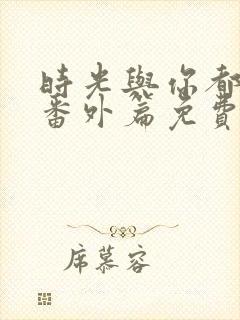 時光與你都
番外篇免費
席慕容